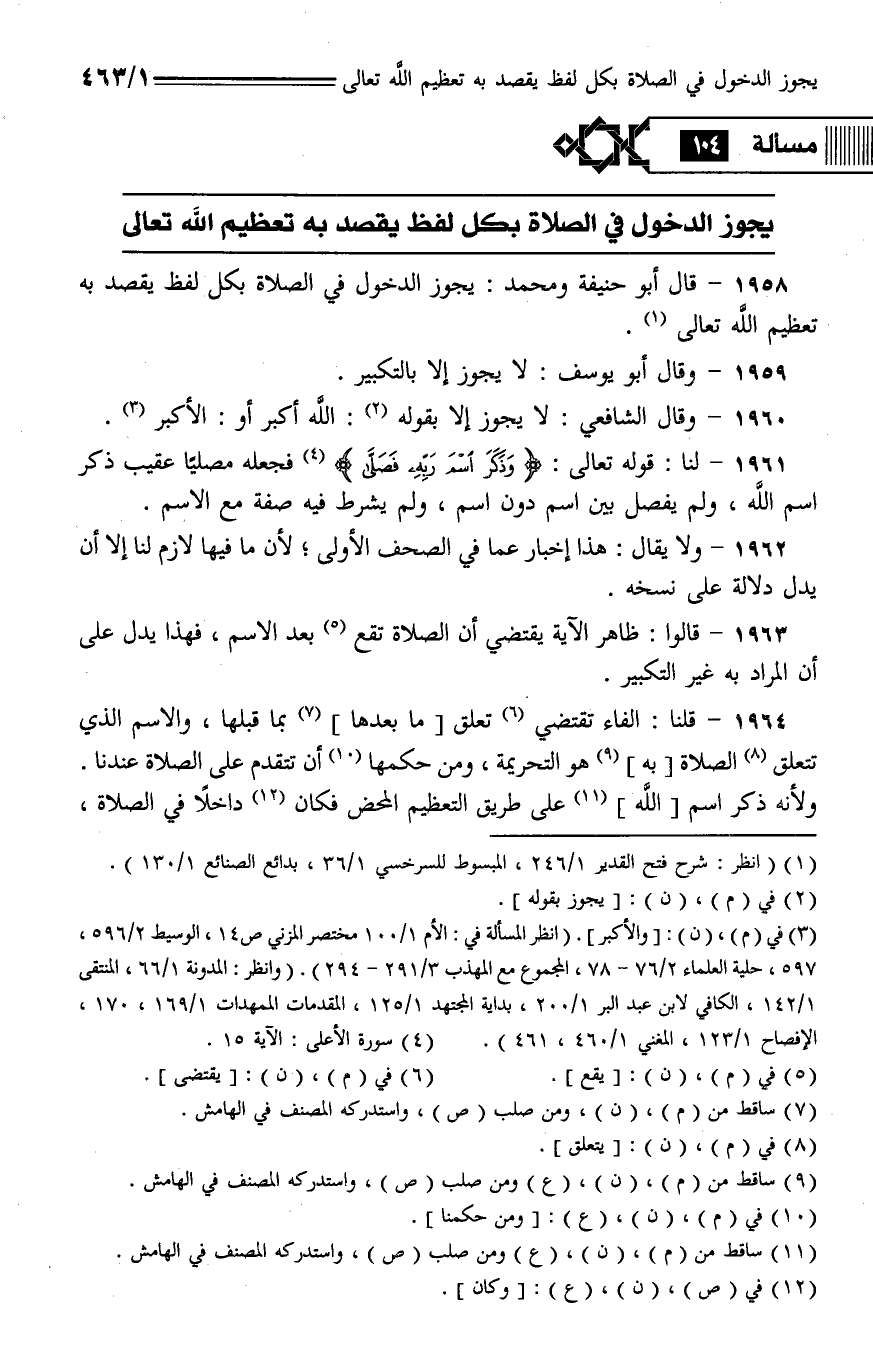 يجوز الدخول في الصلاة بكل لفظ يقصد به تعظيم اللَّه تعالى ٤٦٣/١
مسألة ١٠٤
يجوز الدخول في الصلاة بكل لفظ يقصد به تعظيم الله تعالى
١٩٥٨ - قال أبو حنيفة ومحمد : يجوز الدخول في الصلاة بكل لفظ يقصد به
تعظيم اللَّه تعالى (١) .
١٩٥٩ - وقال أبو يوسف : لا يجوز إلا بالتكبير .
١٩٦٠ - وقال الشافعي : لا يجوز إلا بقوله (٢) : اللَّه أكبر أو : الأكبر (٣) .
١٩٦١ - لنا : قوله تعالى : ﴿ وَذَكَرَ ٱسْمَ رَبِّهِۦ فَصَلَّىٰ ﴾ (٤) فجعله مصليًا عقيب ذكر
اسم اللَّه ، ولم يفصل بين اسم دون اسم ، ولم يشرط فيه صفة مع الاسم .
١٩٦٢ - ولا يقال : هذا إخبار عما في الصحف الأولى ؛ لأن ما فيها لازم لنا إلا أن
يدل دلالة على نسخه .
١٩٦٣ - قالوا : ظاهر الآية يقتضي أن الصلاة تقع (٥) بعد الاسم ، فهذا يدل على
أن المراد به غير التكبير .
١٩٦٤ - قلنا : الفاء تقتضي (٦) تعلق [ ما بعدها ] (٧) بما قبلها ، والاسم الذي
تتعلق (٨) الصلاة [ به ] (٩) هو التحريمة ، ومن حكمها (١٠) أن تتقدم على الصلاة عندنا .
ولأنه ذكر اسم [ اللَّه ] (١١) على طريق التعظيم المحض فكان (١٢) داخلًا في الصلاة ،
(١) ( انظر : شرح فتح القدير ٢٤٦/١ ، المبسوط للسرخسي ٣٦/١ ، بدائع الصنائع ١٣٠/١ ) .
(٢) في ( م ) ، ( ن ) : [ يجوز بقوله ] .
(٣) في ( م ) ، ( ن ) : [ والأكبر ] . ( انظر المسألة في : الأم ١٠٠/١ مختصر المزني ص١٤ ، الوسيط ٥٩٦/٢ ،
٥٩٧ ، حلية العلماء ٧٦/٢ - ٧٨ ، المجموع مع المهذب ٢٩١/٣ - ٢٩٤ ) . ( وانظر : المدونة ٦٦/١ ، المنتقى
١٤٢/١ ، الكافي لابن عبد البر ٢٠٠/١ ، بداية المجتهد ١٢٥/١ ، المقدمات الممهدات ١٦٩/١ ، ١٧٠ ،
الإفصاح ١٢٣/١ ، المغني ٤٦٠/١ ، ٤٦١ ) . (٤) سورة الأعلى : الآية ١٥ .
(٥) في ( م ) ، ( ن ) : [ يقع ] . (٦) في ( م ) ، ( ن ) : [ يقتضى ] .
(٧) ساقط من ( م ) ، ( ن ) ، ومن صلب ( ص ) ، واستدركه المصنف في الهامش .
(٨) في ( م ) ، ( ن ) : [ يتعلق ] .
(٩) ساقط من ( م ) ، ( ن ) ، ( ع ) ومن صلب ( ص ) ، واستدركه المصنف في الهامش .
(١٠) في ( م ) ، ( ن ) ، ( ع ) : [ ومن حكمنا ] .
(١١) ساقط من ( م ) ، ( ن ) ، ( ع ) ومن صلب ( ص ) ، واستدركه المصنف في الهامش .
(١٢) في ( ص ) ، ( ن ) ، ( ع ) : [ وكان ] .